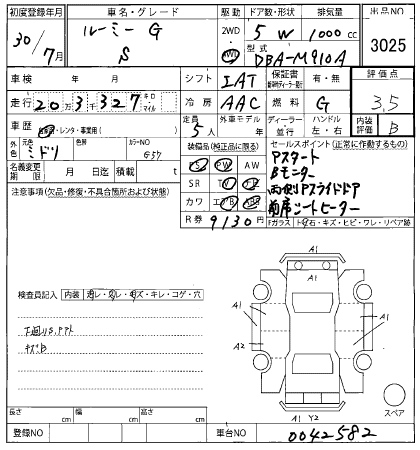 初度登録年月 車名・グレード 駆動 ドア数・形状 排気量 出品NO
30/7月 ルーミー G S 2WD 4WD 5 W 1000 cc 3025
型式 DBA-M910A
車検 年 月 シフト IAT 保証書 有・無 評価点
走行 20万3千327 キロ マイル 冷房 AAC 燃料 G 3.5
車歴 自家用・レンタ・事業用( ) 定員 5人 外車モデル 年 ディーラー 並行 ハンドル 左・右 内装評価 B
外色 元色 ミドリ 色替 カラーNO G57 装備品(純正品に限る) セールスポイント(正常に作動するもの)
名義変更期限 月 日迄 積載 t PS PW AW
SR TV ナビ
カワ エアB ABS
R券 9130円
Aスタート
Bモニター
両側Aスライドドア
前席シートヒーター
注意事項(欠品・修復・不具合箇所および状態)
Fガラス トビ石・キズ・ヒビ・ワレ・リペア跡
検査員記入 内装 汚レ・スレ・キズ・キレ・コゲ・穴
下廻りS,アト
キズB
A1
A1
A1
A1
A2
A1 Y2
スペア
長さ cm 幅 cm 高さ cm
登録NO 車台NO 0042582